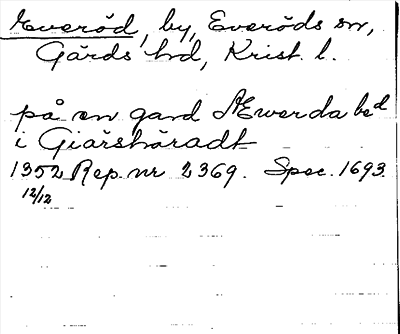 Everöd, by, Everöds sn,
Gärds hd, Krist. l.
på en gard Æwerda bed
i Giärshäradt
1352 Rep. nr 2369. Spec. 1693.
12/12